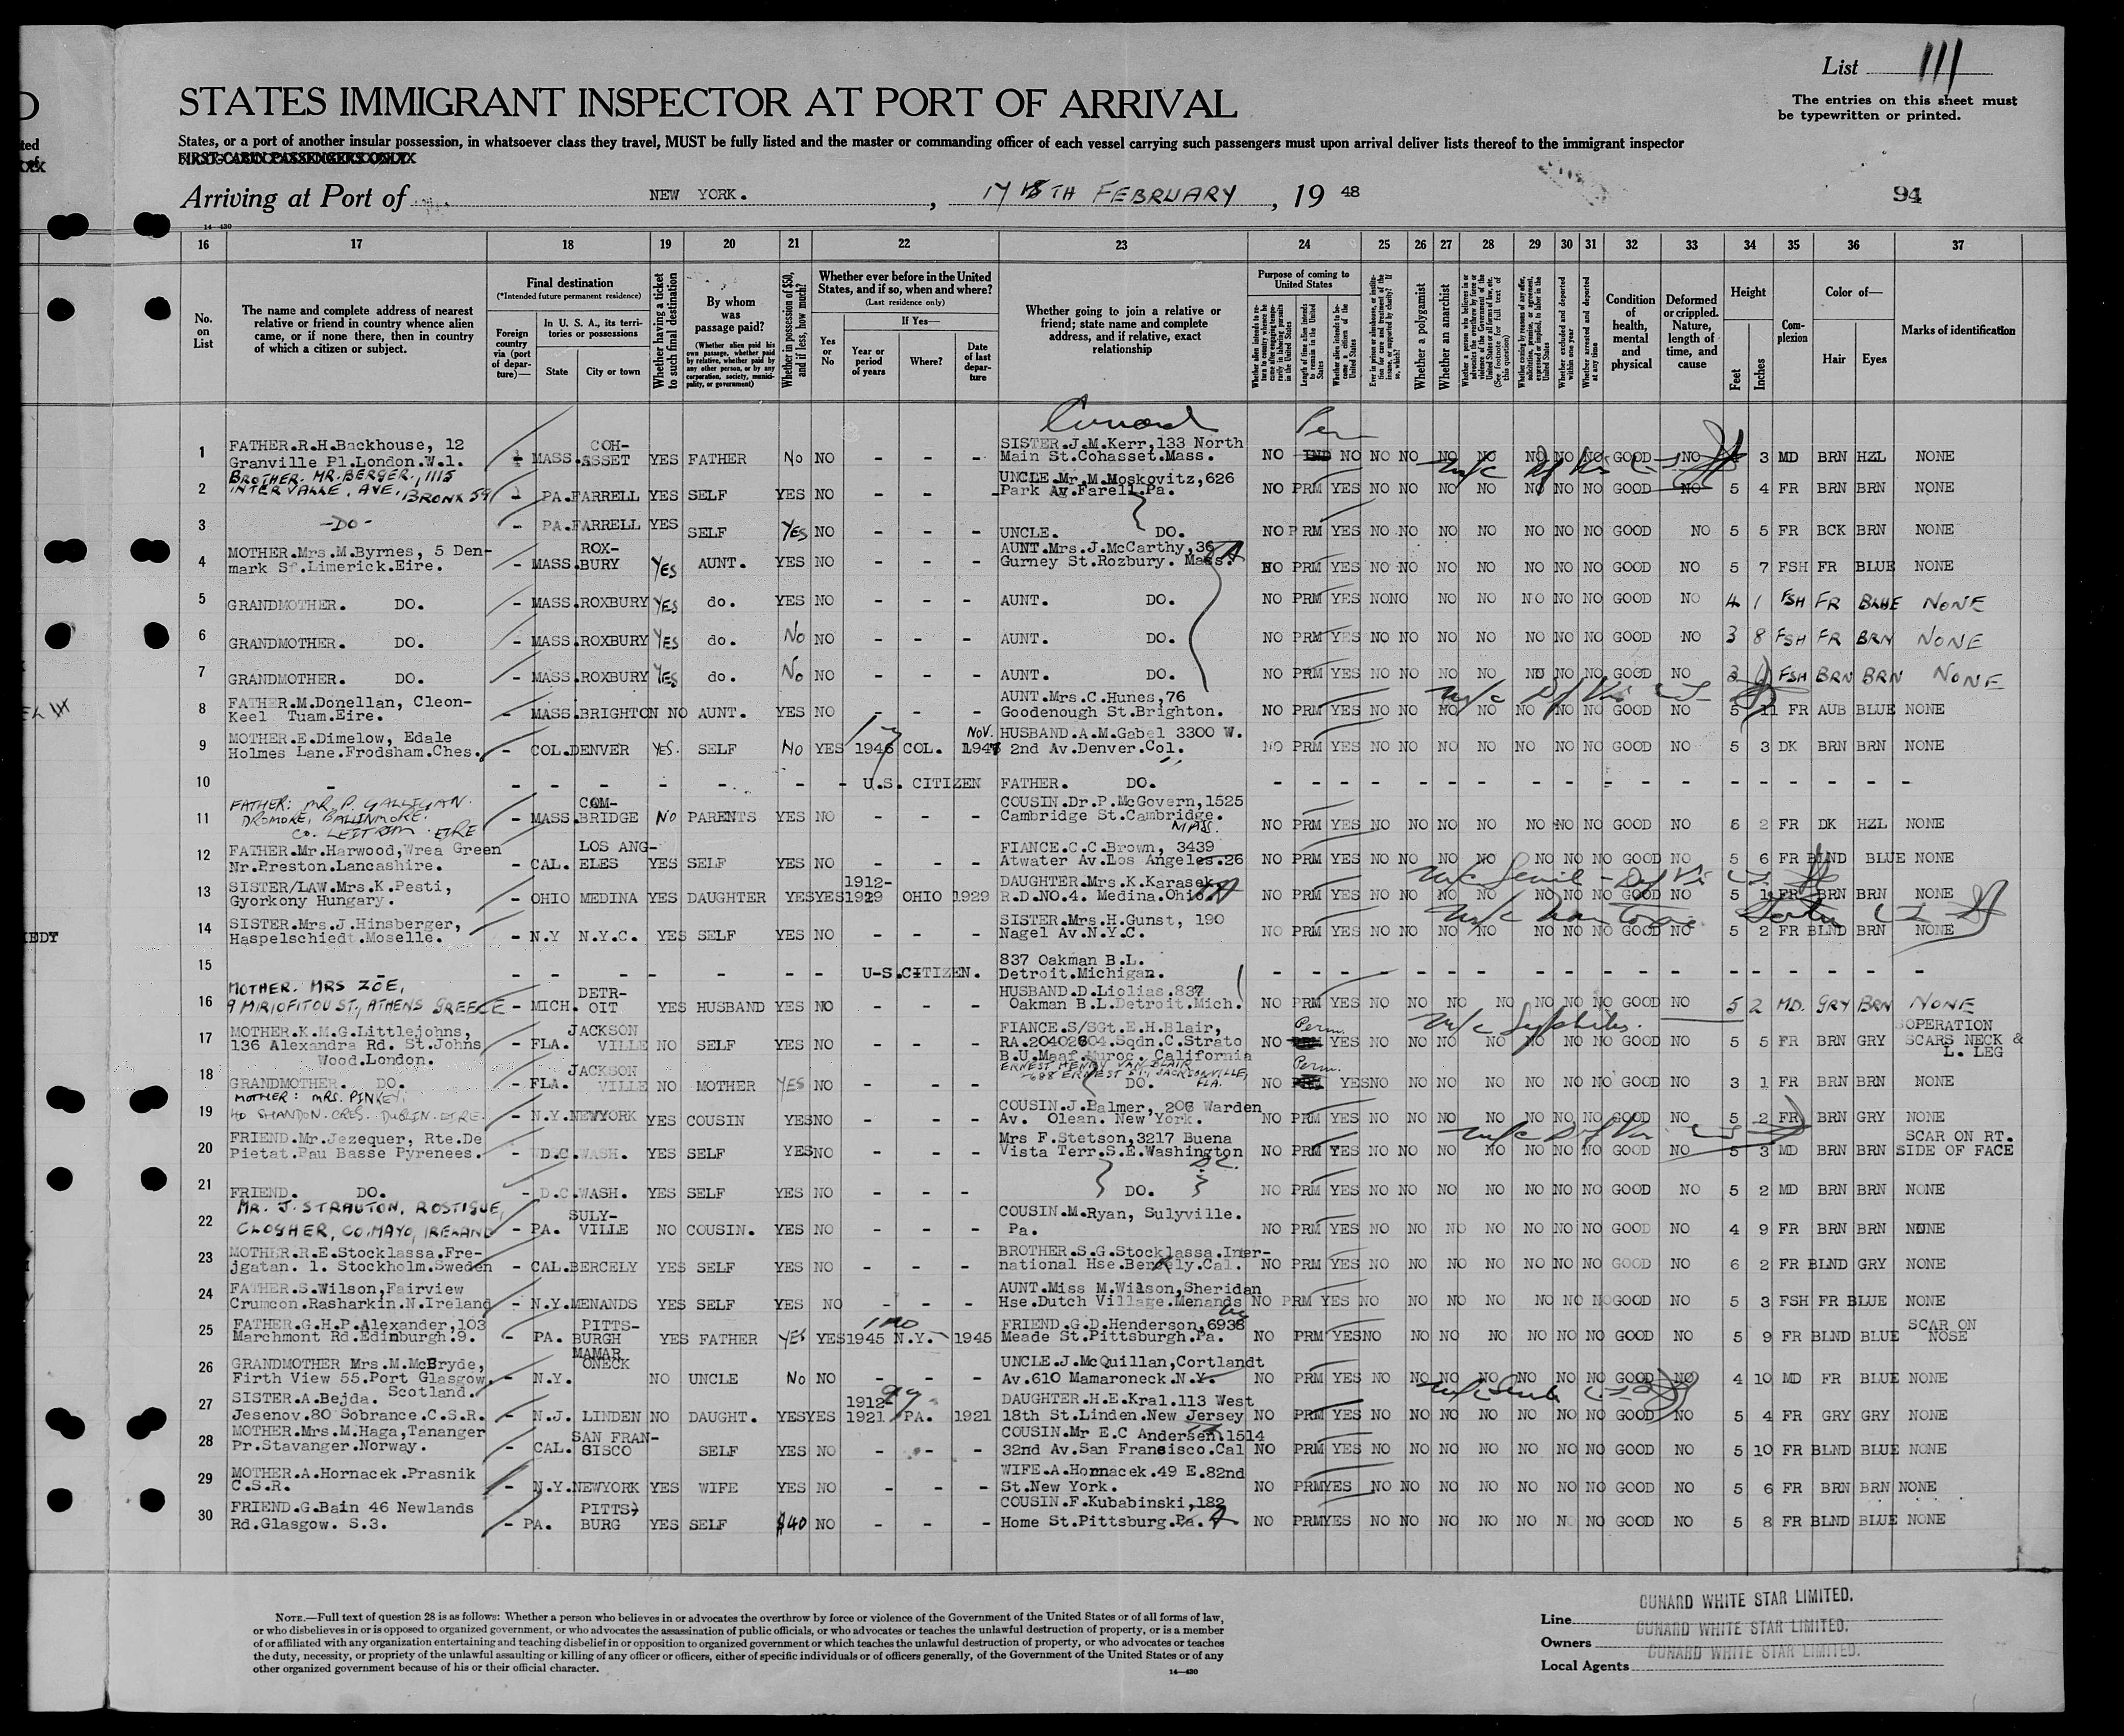 List 111
The entries on this sheet must
be typewritten or printed.
STATES IMMIGRANT INSPECTOR AT PORT OF ARRIVAL
States, or a port of another insular possession, in whatsoever class they travel, MUST be fully listed and the master or commanding officer of each vessel carrying such passengers must upon arrival deliver lists thereof to the immigrant inspector
Arriving at Port of NEW YORK. , TH FEBRUARY , 19 48
94
14—430
16 17 18 19 20 21 22 23 24 25 26 27 28 29 30 31 32 33 34 35 36 37
No. on List
The name and complete address of nearest relative or friend in country whence alien came, or if none there, then in country of which a citizen or subject.
Final destination
(*Intended future permanent residence)
Foreign country via (port of departure)—
In U. S. A., its territories or possessions
State
City or town
Whether having a ticket to such final destination
By whom was passage paid?
(Whether alien paid his own passage, whether paid by relative, whether paid by any other person, or by any corporation, society, municipality, or government)
Whether in possession of $50, and if less, how much?
Whether ever before in the United States, and if so, when and where?
(Last residence only)
Yes or No
If Yes—
Year or period of years
Where?
Date of last departure
Whether going to join a relative or friend; state name and complete address, and if relative, exact relationship
Purpose of coming to United States
Length of time alien intends to remain in the United States
Whether alien intends to become a citizen of the United States
Whether a polygamist
Whether an anarchist
Whether excluded and deported within one year
Whether arrested and deported at any time
Condition of health, mental and physical
Deformed or crippled. Nature, length of time, and cause
Height
Feet
Inches
Complexion
Color of—
Hair
Eyes
Marks of identification
Cunard
1 FATHER.R.H.Backhouse, 12 Granville Pl.London.W.1. MASS. COH-ASSET YES FATHER No NO - - - SISTER.J.M.Kerr,133 North Main St.Cohasset.Mass. NO NO NO NO NO NO NO NO GOOD NO 3 MD BRN HZL NONE
2 BROTHER. MR. BERGER, 1115 INTERVALLE, AVE, BRONX 59 PA. FARRELL YES SELF YES NO - - - UNCLE.Mr.M.Moskovitz,626 Park Av.Farell.Pa. NO PRM YES NO NO NO NO NO NO NO GOOD NO 5 4 FR BRN BRN NONE
3 -DO- - PA. FARRELL YES SELF YES NO - - - UNCLE. DO. NO PRM YES NO NO NO NO NO NO NO GOOD NO 5 5 FR BCK BRN NONE
4 MOTHER.Mrs.M.Byrnes, 5 Den-mark St.Limerick.Eire. - MASS. ROX-BURY YES AUNT. YES NO - - - AUNT.Mrs.J.McCarthy,36 Gurney St.Rozbury. Mass. NO PRM YES NO NO NO NO NO NO NO GOOD NO 5 7 FSH FR BLUE NONE
5 GRANDMOTHER. DO. - MASS. ROXBURY YES do. YES NO - - - AUNT. DO. NO PRM YES NO NO NO NO NO NO NO GOOD NO 4 1 FSH FR BLUE NONE
6 GRANDMOTHER. DO. - MASS. ROXBURY YES do. No NO - - - AUNT. DO. NO PRM YES NO NO NO NO NO NO NO GOOD NO 3 8 FSH FR BRN NONE
7 GRANDMOTHER. DO. - MASS. ROXBURY YES do. No NO - - - AUNT. DO. NO PRM YES NO NO NO NO NO NO NO GOOD NO 3 FSH BRN BRN NONE
8 FATHER.M.Donellan, Cleon-Keel Tuam.Eire. - MASS. BRIGHTON NO AUNT. YES NO - - - AUNT.Mrs.C.Hunes,76 Goodenough St.Brighton. NO PRM YES NO NO NO NO NO NO NO GOOD NO 5 11 FR AUB BLUE NONE
9 MOTHER.E.Dimelow, Edale Holmes Lane.Frodsham.Ches. - COL. DENVER YES. SELF No YES 1946 COL. NOV. 1947 HUSBAND.A.M.Gabel 3300 W. 2nd Av.Denver.Col. NO PRM YES NO NO NO NO NO NO NO GOOD NO 5 3 DK BRN BRN NONE
10 - - - - - - - - U.S. CITIZEN FATHER. DO. - - - - - - - - - - - - - - - - -
11 FATHER: MR P. GALLIGAN. DROMORE, BALLINMORE. CO. LEITRIM. EIRE - MASS. CAM-BRIDGE NO PARENTS YES NO - - - COUSIN.Dr.P.McGovern,1525 Cambridge St.Cambridge. MASS. NO PRM YES NO NO NO NO NO NO NO GOOD NO 5 2 FR DK HZL NONE
12 FATHER.Mr.Harwood,Wrea Green Nr.Preston.Lancashire. - CAL. LOS ANG-ELES YES SELF YES NO - - - FIANCE.C.C.Brown, 3439 Atwater Av.Los Angeles.26 NO PRM YES NO NO NO NO NO NO NO GOOD NO 5 6 FR BLND BLUE NONE
13 SISTER/LAW.Mrs.K.Pesti, Gyorkony Hungary. - OHIO MEDINA YES DAUGHTER YES YES 1912-1929 OHIO 1929 DAUGHTER.Mrs.K.Karasek R.D.NO.4. Medina.Ohio. NO PRM YES NO NO NO NO NO NO NO GOOD NO 5 1 FR BRN BRN NONE
14 SISTER.Mrs.J.Hinsberger, Haspelschiedt.Moselle. - N.Y N.Y.C. YES SELF YES NO - - - SISTER.Mrs.H.Gunst, 190 Nagel Av.N.Y.C. NO PRM YES NO NO NO NO NO NO NO GOOD NO 5 2 FR BLND BRN NONE
15 - - - - - - - - U.S.CITIZEN. 837 Oakman B.L. Detroit.Michigan. - - - - - - - - - - - - - - - - -
16 MOTHER. MRS ZOE, 9 MIRIOFITOU ST, ATHENS GREECE - MICH. DETR-OIT YES HUSBAND YES NO - - - HUSBAND.D.Liolias.837 Oakman B.L.Detroit.Mich. NO PRM YES NO NO NO NO NO NO NO GOOD NO 5 2 MD. GRY BRN NONE
17 MOTHER.K.M.G.Littlejohns, 136 Alexandra Rd. St.Johns Wood.London. - FLA. JACKSON VILLE NO SELF YES NO - - - FIANCE.S/SGt.E.H.Blair, RA.20402604.Sqdn.C.Strato B.U.Maaf.Muroc. California NO Perm. YES NO NO NO NO NO NO NO GOOD NO 5 5 FR BRN GRY OPERATION SCARS NECK & L. LEG
18 GRANDMOTHER. DO. - FLA. JACKSON VILLE NO MOTHER YES NO - - - ERNEST HENRY VAN BLAIR 2688 ERNEST ST, JACKSONVILLE, FLA. DO. NO Perm. YES NO NO NO NO NO NO NO GOOD NO 3 1 FR BRN BRN NONE
19 MOTHER: MRS. PINKEY, 40 SHANDON. CRES. DUBLIN. EIRE - N.Y. NEWYORK YES COUSIN YES NO - - - COUSIN.J.Palmer, 206 Warden Av. Olean. New York. NO PRM YES NO NO NO NO NO NO NO GOOD NO 5 2 FR BRN GRY NONE
20 FRIEND.Mr.Jezequer, Rte.De Pietat.Pau Basse Pyrenees. - D.C. WASH. YES SELF YES NO - - - Mrs F.Stetson,3217 Buena Vista Terr.S.E.Washington D.C. NO PRM YES NO NO NO NO NO NO NO GOOD NO 5 3 MD BRN BRN SCAR ON RT. SIDE OF FACE
21 FRIEND. DO. - D.C. WASH. YES SELF YES NO - - - DO. NO PRM YES NO NO NO NO NO NO NO GOOD NO 5 2 MD BRN BRN NONE
22 MR. J. STRAUTON, ROSTIGUE, CLOGHER, CO. MAYO, IRELAND - PA. SULY-VILLE NO COUSIN. YES NO - - - COUSIN.M.Ryan, Sulyville. Pa. NO PRM YES NO NO NO NO NO NO NO GOOD NO 4 9 FR BRN BRN NONE
23 MOTHER.R.E.Stocklassa.Fre-jgatan. 1. Stockholm.Sweden - CAL. BERCELY YES SELF YES NO - - - BROTHER.S.G.Stocklassa.Iner-national Hse.Berkely.Cal. NO PRM YES NO NO NO NO NO NO NO GOOD NO 6 2 FR BLND GRY NONE
24 FATHER.S.Wilson,Fairview Crumcon.Rasharkin.N.Ireland - N.Y. MENANDS YES SELF YES NO - - - AUNT.Miss M.Wilson,Sheridan Hse.Dutch Village.Menands NO PRM YES NO NO NO NO NO NO NO GOOD NO 5 3 FSH FR BLUE NONE
25 FATHER.G.H.P.Alexander,103 Marchmont Rd.Edinburgh.9. - PA. PITTS-BURGH YES FATHER YES YES 1945 N.Y. - 1945 FRIEND.G.D.Henderson,6938 Meade St.Pittsburgh.Pa. NO PRM YES NO NO NO NO NO NO NO GOOD NO 5 9 FR BLND BLUE SCAR ON NOSE
26 GRANDMOTHER Mrs.M.McBryde, Firth View 55.Port Glasgow. Scotland. - N.Y. MAMAR ONECK NO UNCLE No NO - - - UNCLE.J.McQuillan,Cortlandt Av.610 Mamaroneck.N.Y. NO PRM YES NO NO NO NO NO NO NO GOOD NO 4 10 MD FR BLUE NONE
27 SISTER.A.Bejda. Jesenov.80 Sobrance.C.S.R. - N.J. LINDEN NO DAUGHT. YES YES 1912-1921 PA. 1921 DAUGHTER.H.E.Kral.113 West 18th St.Linden.New Jersey NO PRM YES NO NO NO NO NO NO NO GOOD NO 5 4 FR GRY GRY NONE
28 MOTHER.Mrs.M.Haga,Tananger Pr.Stavanger.Norway. - CAL. SAN FRAN-SISCO SELF YES NO - - - COUSIN.Mr E.C Andersen.1514 32nd Av.San Fransisco.Cal NO PRM YES NO NO NO NO NO NO NO GOOD NO 5 10 FR BLND BLUE NONE
29 MOTHER.A.Hornacek.Prasnik C.S.R. - N.Y. NEWYORK YES WIFE YES NO - - - WIFE.A.Hornacek.49 E.82nd St.New York. NO PRM YES NO NO NO NO NO NO NO GOOD NO 5 6 FR BRN BRN NONE
30 FRIEND.G.Bain 46 Newlands Rd.Glasgow. S.3. - PA. PITTS-BURG YES SELF $40 NO - - - COUSIN.F.Kubabinski,182 Home St.Pittsburg.Pa. NO PRM YES NO NO NO NO NO NO NO GOOD NO 5 8 FR BLND BLUE NONE
NOTE.—Full text of question 28 is as follows: Whether a person who believes in or advocates the overthrow by force or violence of the Government of the United States or of all forms of law,
or who disbelieves in or is opposed to organized government, or who advocates the assassination of public officials, or who advocates or teaches the unlawful destruction of property, or is a member
of or affiliated with any organization entertaining and teaching disbelief in or opposition to organized government or which teaches the unlawful destruction of property, or who advocates or teaches
the duty, necessity, or propriety of the unlawful assaulting or killing of any officer or officers, either of specific individuals or of officers generally, of the Government of the United States or of any
other organized government because of his or their official character.
14—430
Line CUNARD WHITE STAR LIMITED.
Owners CUNARD WHITE STAR LIMITED.
Local Agents CUNARD WHITE STAR LIMITED.